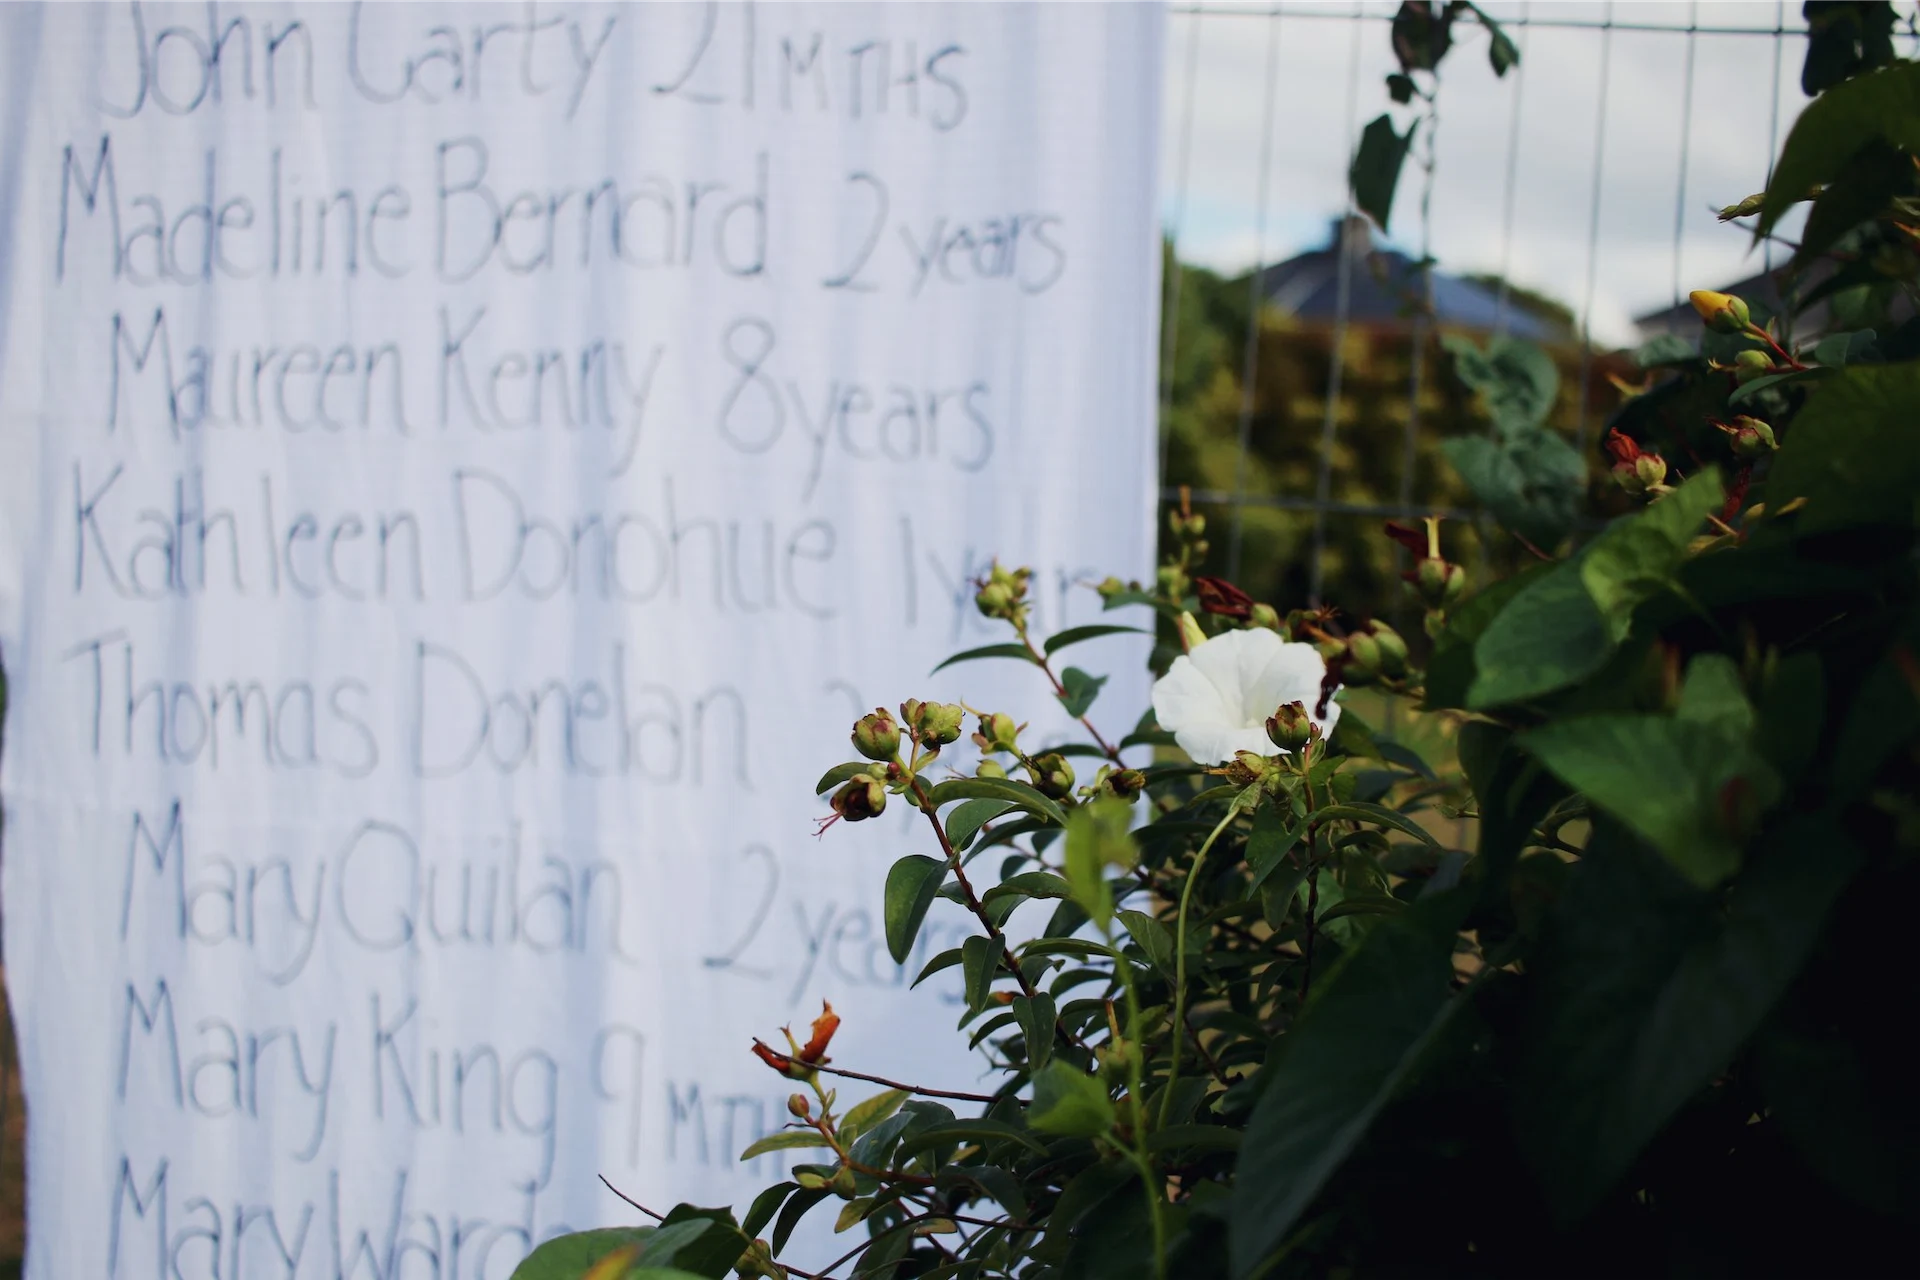 John Carty 21 MTHS
Madeline Bernard 2 years
Maureen Kenny 8 years
Kathleen Donohue 1 year
Thomas Donelan
Mary Quilan 2 years
Mary King 9 MTH
Mary Ward